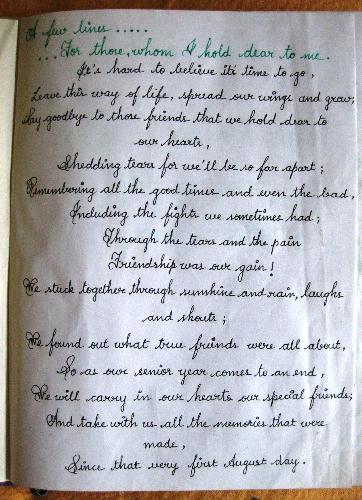 A few lines .....
... For those, whom I hold dear to me.
It's hard to believe it's time to go,
Leave this way of life, spread our wings and grow;
Say goodbye to those friends that we hold dear to
our hearts,
Shedding tears for we'll be so far apart;
Remembering all the good times and even the bad,
Including the fights we sometimes had;
Through the tears and the pain
Friendship was our gain!
We stuck together through sunshine and rain, laughs
and shouts;
We found out what true friends were all about,
So as our senior year comes to an end,
We will carry in our hearts our special friends;
And take with us all the memories that were
made,
Since that very first August day.